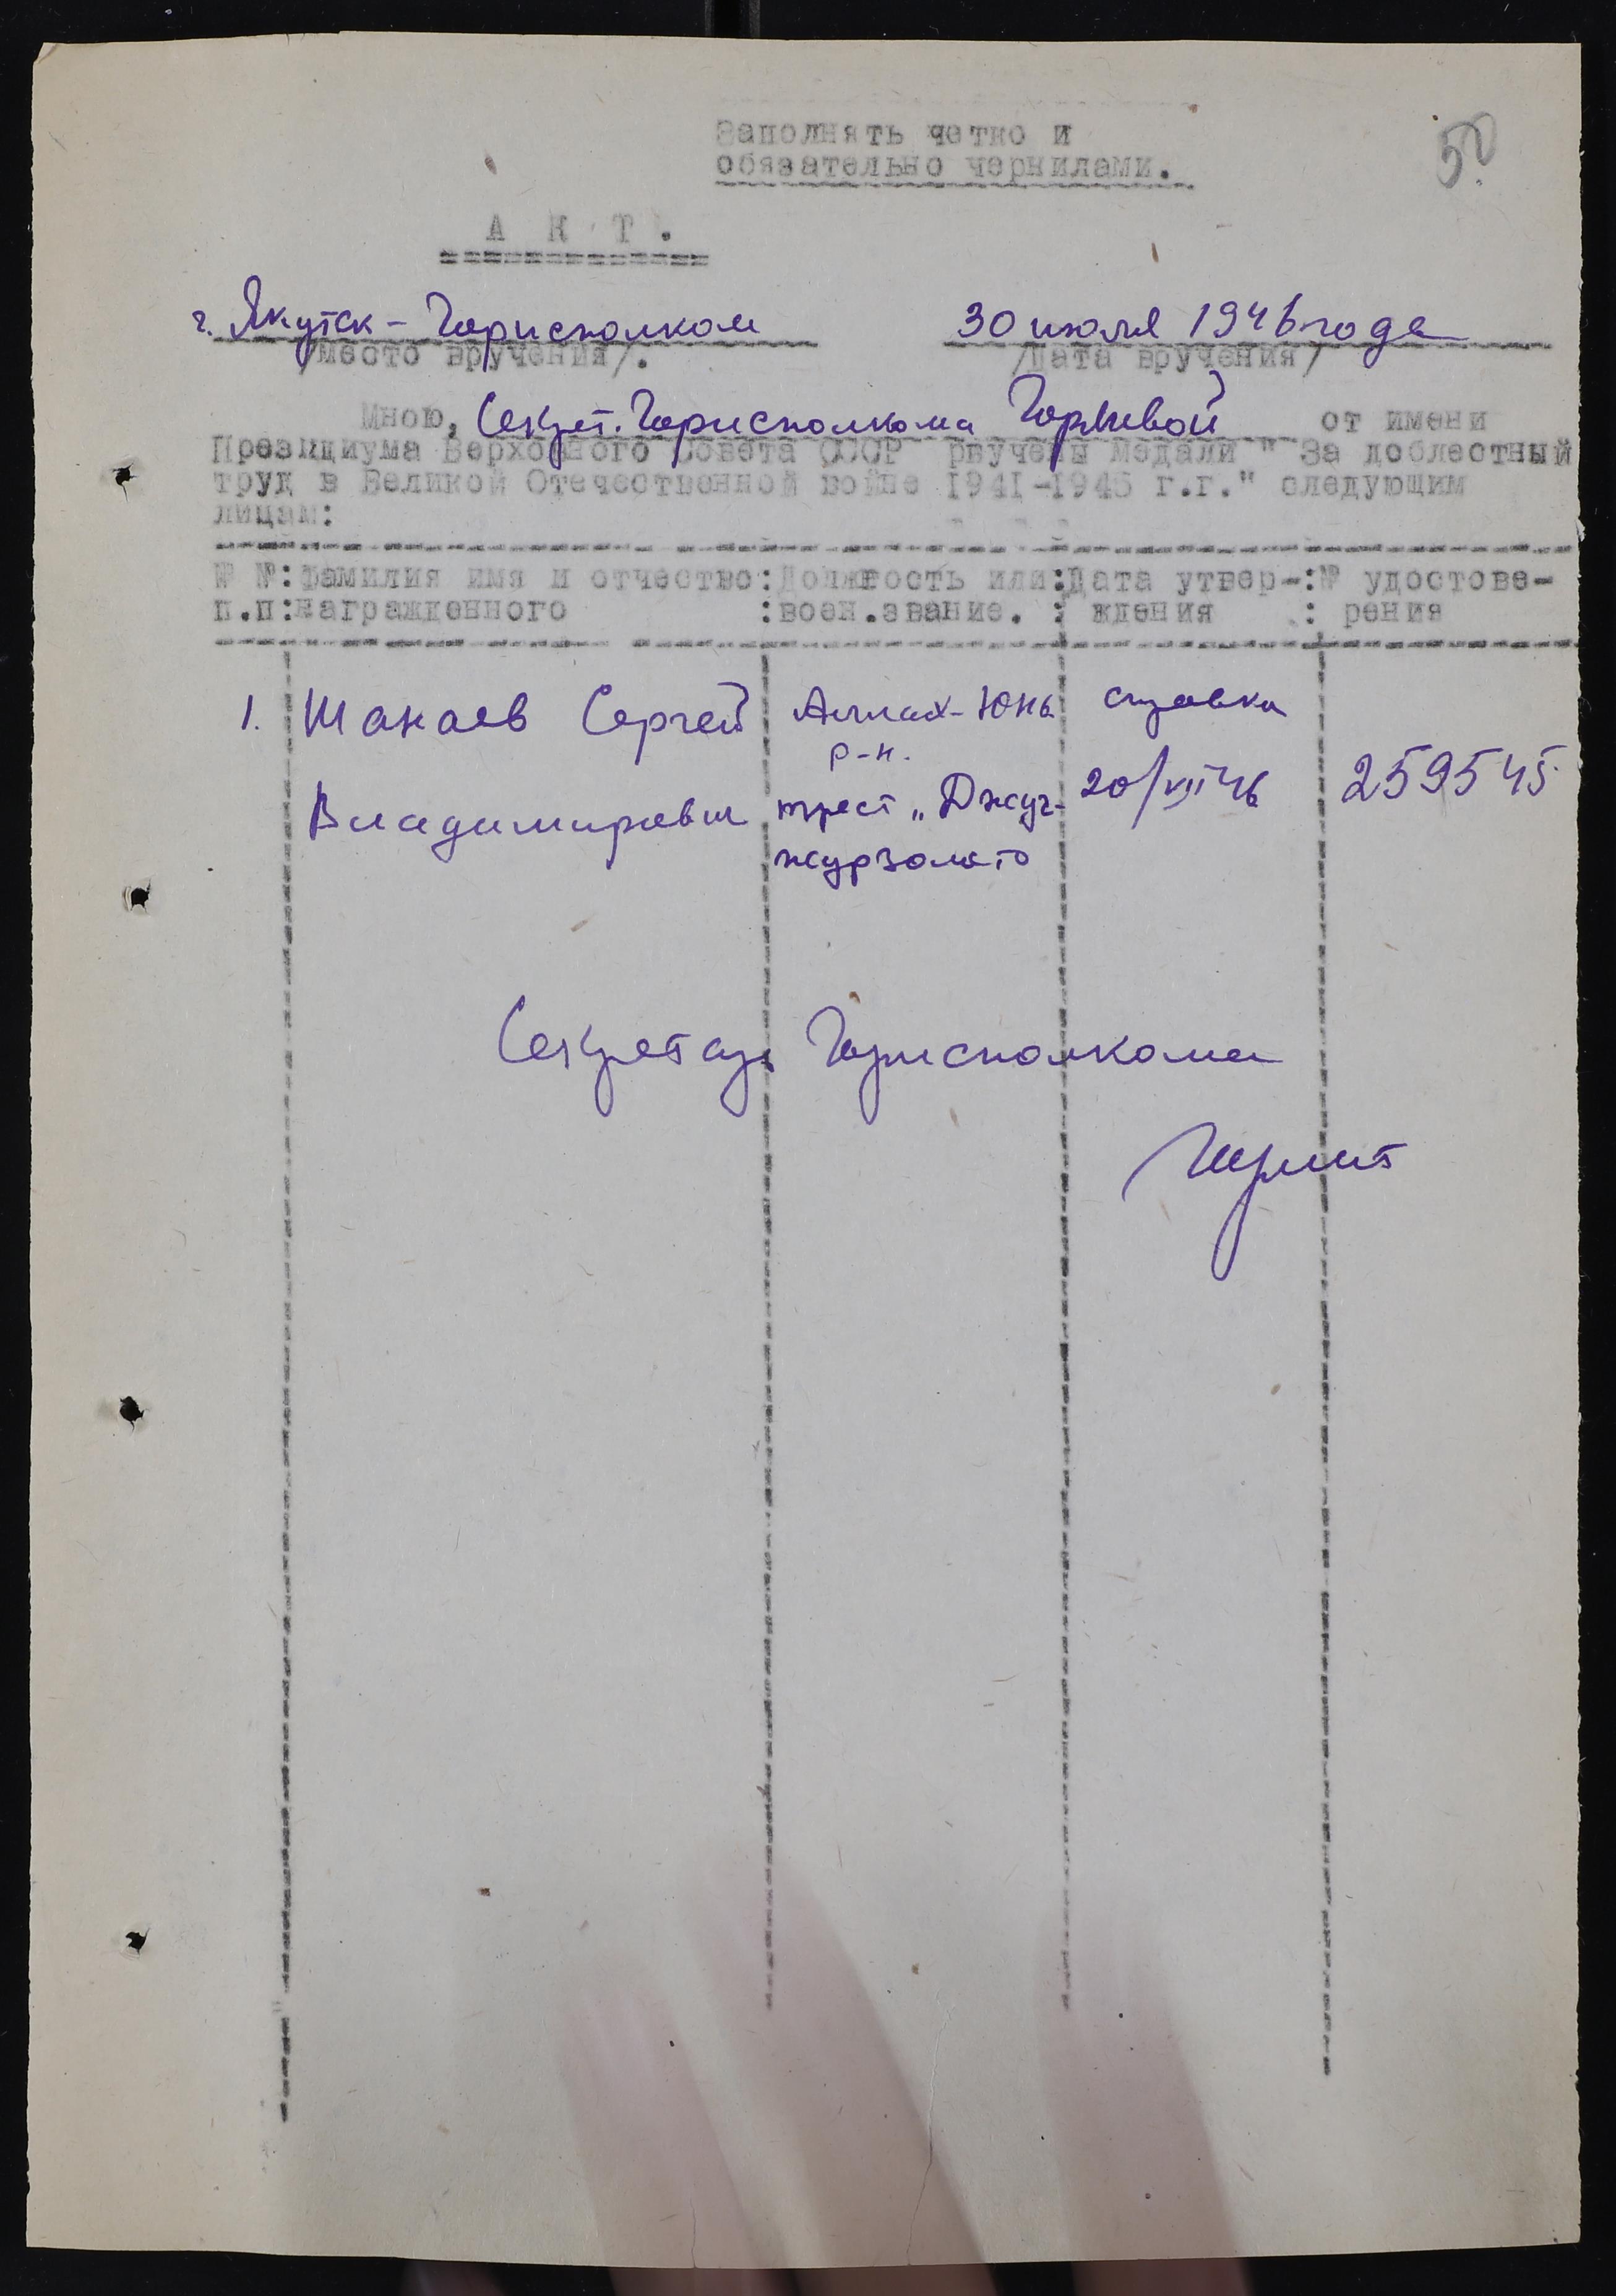 Заполнять четко и
обязательно чернилами.
50
А К Т .
г. Якутск - Горисполком 30 июля 1946 года
/место вручения/. /Дата вручения/
Мною, Секрет. Горисполкома от имени
Президиума Верховного Совета СССР рвучены медали " За доблестный
труд в Великой Отечественной войне 1941-1945 г.г." следующим
лицам:
№ №:фамилия имя и отчество:Должность или:Дата утвер-:№ удостове-
п.п:награжденного :воен.звание. : ждения : рения
1. Шанаев Сергей Аллах-Юнь справка
р-н.
Владимирович трест „Джуг- 20/VII 46 259545
журзолото
Секретарь Горисполкома